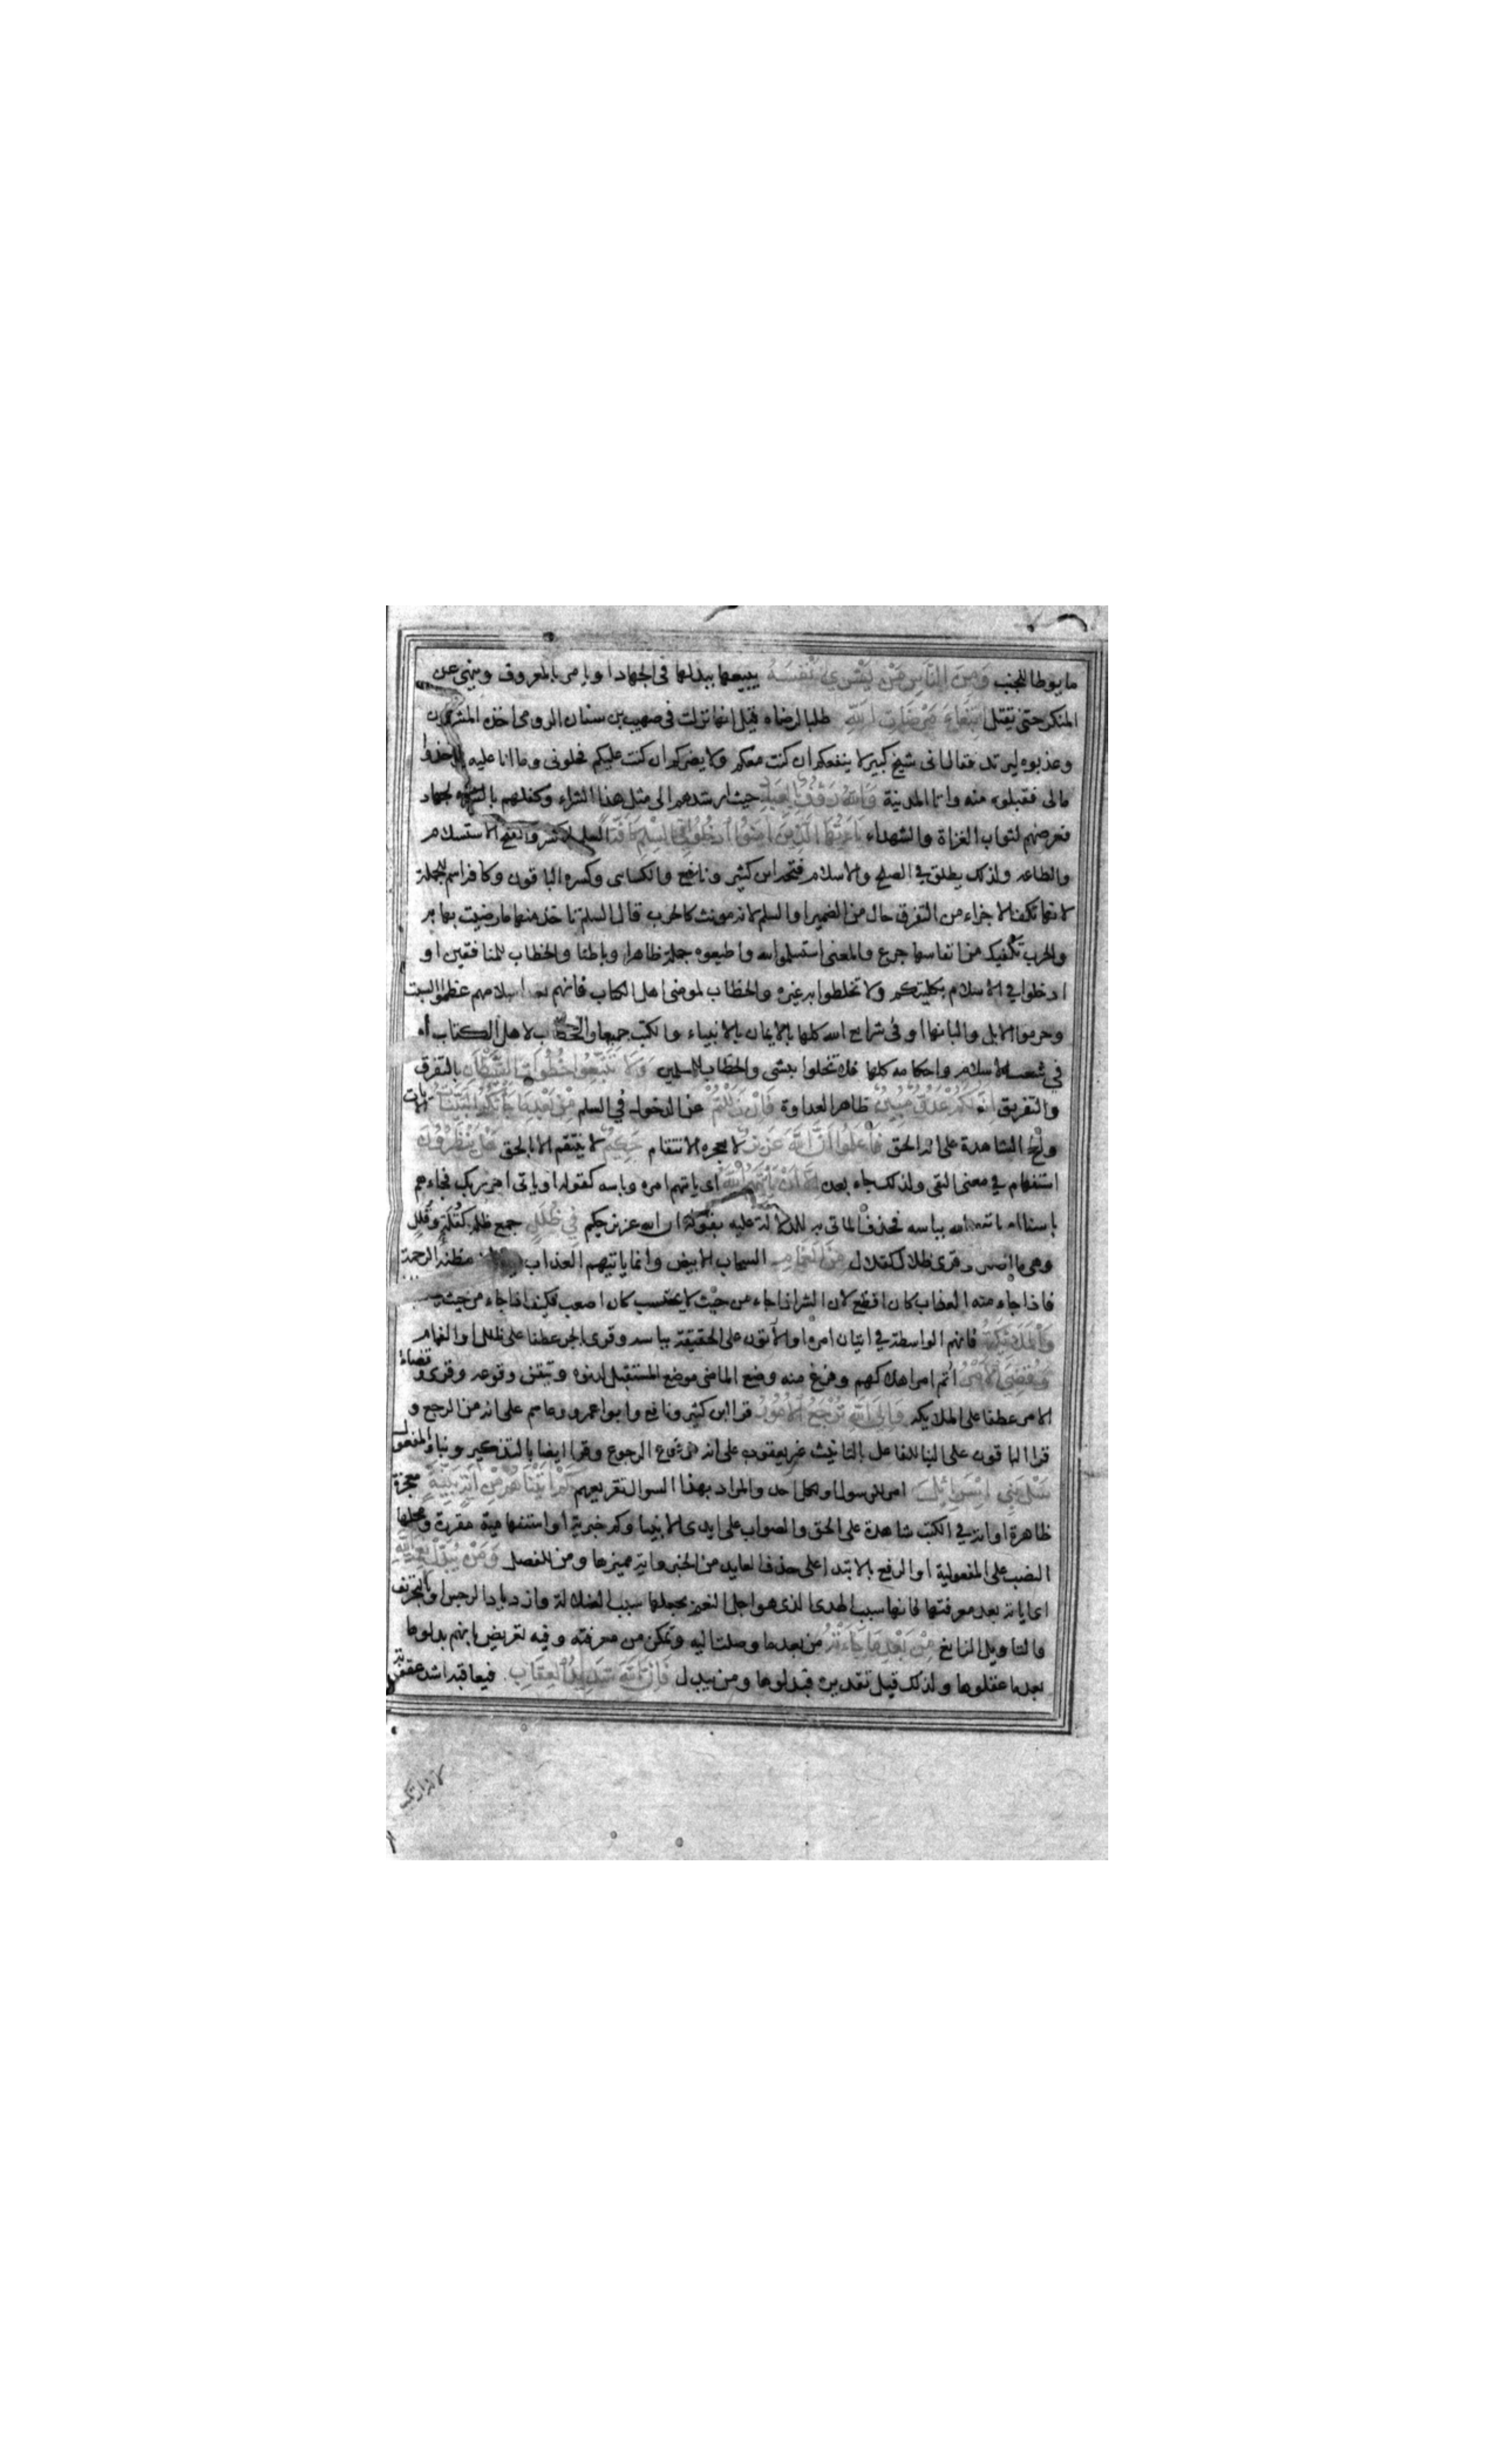 ما يوطا للجنب وَمِنَ النَّاسِ مَنْ يَشْرِي نَفْسَهُ يبيعها ببذلها في الجهاد او يامر بالمعروف وينهى عن
المنكر حتى يقتل ابْتِغَاءَ مَرْضَاتِ اللَّهِ طلبا لرضاه قيل انها نزلت في صهيب بن سنان الرومي اخذه المشركون
وعذبوه ليرتد فقال انى شيخ كبير لا ينفعكم ان كنت معكم ولا يضركم ان كنت عليكم فخلونى وما انا عليه وخذوا
مالى فقبلوه منه واتا المدينة وَاللَّهُ رَؤُفٌ بِالْعِبَادِ حيث ارشدهم الى مثل هذا الشراء وكلفهم بالجهاد
فعرضهم لثواب الغزاة والشهداء يَاأَيُّهَا الَّذِينَ آمَنُوا ادْخُلُوا فِي السِّلْمِ كَافَّةً السلم بالكسر والفتح الاستسلام
والطاعه ولذلك يطلق في الصلح والاسلام فتحه ابن كثير ونافع والكساى وكسره الباقون وكافة اسم للجملة
لانها تكف الاجزاء من التفرق حال من الضمير او السلم لانه مونث كالحرب قال السلم تاخذ منها ما رضيت به
والحرب تكفيك من انفاسها جرع والمعنى استسلموا لله واطيعوه جملة ظاهرا وباطنا والخطاب للمنافقين او
ادخلوا في الاسلام بكليتكم ولا تخلطوا به غيره والخطاب لمومنى اهل الكتاب فانهم بعد اسلامهم عظموا السبت
وحرموا الابل والبانها او في شرايع الله كلها بالايمان بالانبياء والكتب جميعا والخطاب لاهل الكتاب او
في شعب الاسلام واحكامه كلها فلا تخلوا بشى والخطاب للمسلمين وَلَا تَتَّبِعُوا خُطُوَاتِ الشَّيْطَانِ بالتفرق
والتفريق إِنَّهُ لَكُمْ عَدُوٌّ مُبِينٌ ظاهر العداوة فَإِنْ زَلَلْتُمْ عن الدخول في السلم مِنْ بَعْدِ مَا جَاءَتْكُمُ الْبَيِّنَاتُ الايات
والحجج الشاهدة على انه الحق فَاعْلَمُوا أَنَّ اللَّهَ عَزِيزٌ لا يعجزه الانتقام حَكِيمٌ لا ينتقم الا بالحق هَلْ يَنْظُرُونَ
استفهام في معنى النفى ولذلك جاء بعده إِلَّا أَنْ يَأْتِيَهُمُ اللَّهُ اى ياتهم امره وباسه كقوله او ياتى امر ربك فجاءهم
باسنا او ياتيهم الله بباسه فحذف الماتى به للدلالة عليه بقوله ان الله عزيز حكيم فِي ظُلَلٍ جمع ظلة كقلة وقلل
وهى ما اظلك وقرى ظلال كقلال مِنَ الْغَمَامِ السحاب الابيض وانما ياتيهم العذاب فيه لانه مظنة الرحمة
فاذا جاء منه العذاب كان افظع لان الشر اذا جاء من حيث لا يحتسب كان اصعب فكيف اذا جاء من حيث
وَالْمَلَائِكَةُ فانهم الواسطة في اتيان امره او الآتون على الحقيقة بباسه وقرى بالجر عطفا على ظلل او الغمام
وَقُضِيَ الْأَمْرُ اتم امر اهلاكهم وفرغ منه وضع الماضى موضع المستقبل لدنوه وتيقن وقوعه وقرى وقضاء
الامر عطفا على الملايكه وَإِلَى اللَّهِ تُرْجَعُ الْأُمُورُ قرا ابن كثير ونافع وابو عمرو وعاصم على انه من الرجع و
قرا الباقون على البنا للفاعل بالتانيث غير يعقوب على انه من الرجوع وقرا ايضا بالتذكير وبناء المفعول
سَلْ بَنِي إِسْرَائِيلَ امر للرسول او لكل احد والمراد بهذا السوال تقريعهم كَمْ آتَيْنَاهُمْ مِنْ آيَةٍ بَيِّنَةٍ معجزة
ظاهرة او اية في الكتب شاهدة على الحق والصواب على ايدى الانبيا وكم خبرية او استفهامية مقررة ومحلها
النصب على المفعولية او الرفع بالابتدا على حذف العايد من الخبر واية مميزها ومن للفصل وَمَنْ يُبَدِّلْ نِعْمَةَ اللَّهِ
اى اياته بعد معرفتها فانها سبب الهدى الذى هو اجل النعم بجعلها سبب الضلالة وازدياد الرجس او بالتحريف
والتاويل الزايغ مِنْ بَعْدِ مَا جَاءَتْهُ من بعد ما وصلت اليه وتمكن من معرفته وفيه تعريض بانهم بدلوها
بعد ما عقلوها ولذلك قيل تقديره فبدلوها ومن يبدل فَإِنَّ اللَّهَ شَدِيدُ الْعِقَابِ فيعاقبه اشد عقوبة
لانه ارتكب